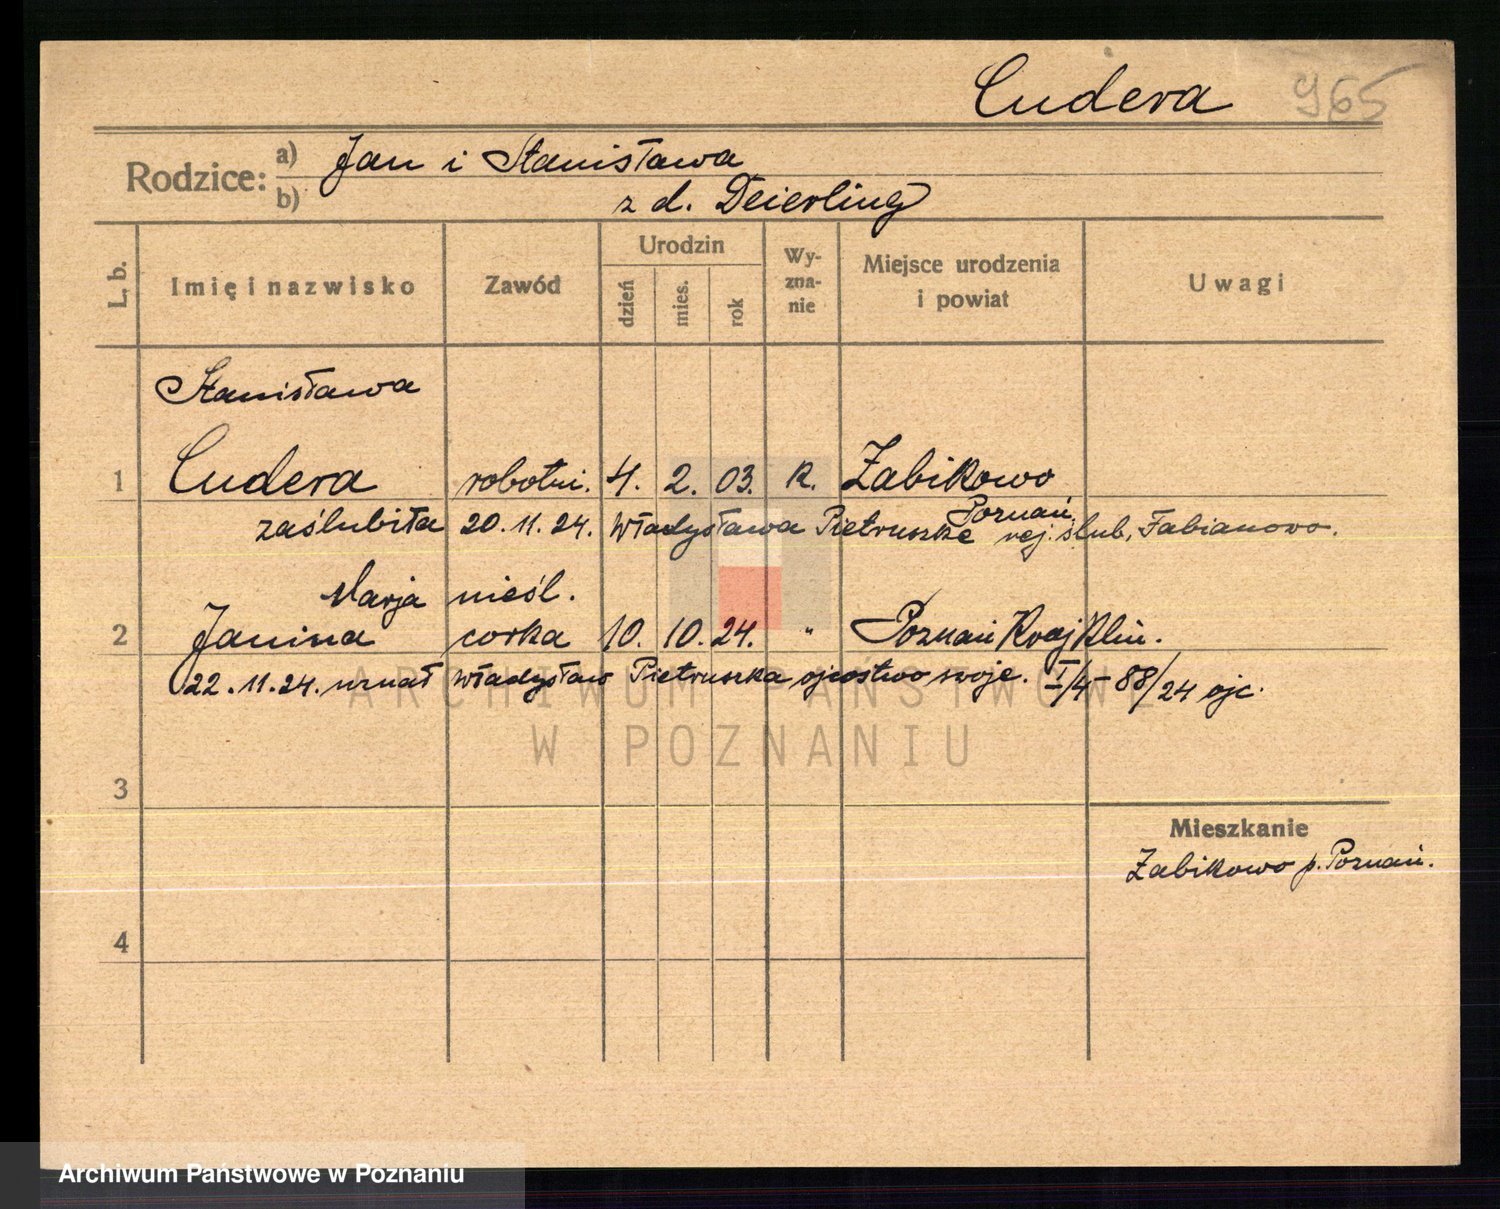 Cudera 965
Rodzice: a) Jan i Stanisława
b) z d. Deierling
L. b. Imię i nazwisko Zawód Urodzin dzień mies. rok Wy-zna-nie Miejsce urodzenia i powiat Uwagi
Stanisława
1 Cudera robotni. 4. 2. 03. k. Żabikowo
Poznań
zaślubiła 20.11.24. Władysława Pietruszkę rej. ślub. Fabianowo.
Marja nieśl.
2 Janina córka 10. 10. 24. " Poznań Kraj Klin.
22.11.24. uznał Władysław Pietruszka ojcostwo swoje. I/4- 88/24 ojc.
3
Mieszkanie
Żabikowo p. Poznań.
4
ARCHIWUM PAŃSTWOWE
W POZNANIU
Archiwum Państwowe w Poznaniu